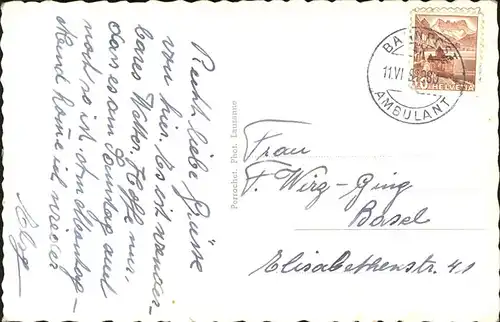 Recht liebe Grüsse
von hier. Es ist wunder-
bares Wetter. Hoffe nur,
dass es am Sonntag auch
noch so ist. Am Montag-
Abend komme ich wieder
Perrochet. Phot. Lausanne
BAHNPOST
11.VI
AMBULANT
HELVETIA
Frau
F. Wirz-Ging
Basel
Elisabethenstr. 41